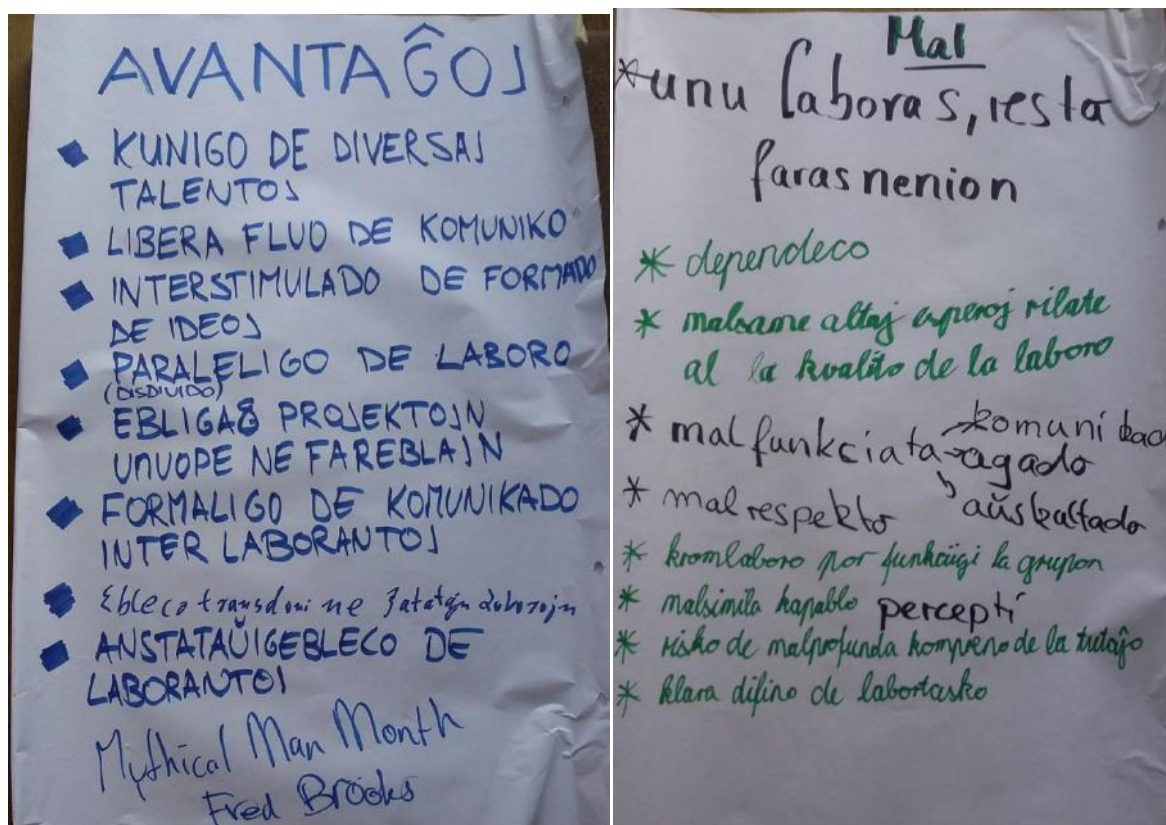 AVANTAĜOJ
KUNIGO DE DIVERSAJ
TALENTOJ
LIBERA FLUO DE KOMUNIKO
INTERSTIMULADO DE FORMADO
DE IDEOJ
PARALELIGO DE LABORO
(DISDIVIDO)
EBLIGAS PROJEKTOJN
UNUOPE NE FAREBLAJN
FORMALIGO DE KOMUNIKADO
INTER LABORANTOJ
Ebleco transdoni ne ŝatatajn laborojn
ANSTATAŬIGEBLECO DE
LABORANTOJ
Mythical Man Month
Fred Brooks
Mal
* unu laboras, resto
faras nenion
* dependeco
* malsame altaj esperoj rilate
al la kvalito de la laboro
* malfunkciata komunikad
agado
* malrespekto aŭskultado
* kromlaboro por funkciigi la grupon
* malsimila kapablo percepti
* risko de malprofunda kompreno de la tutaĵo
* klara difino de labortasko